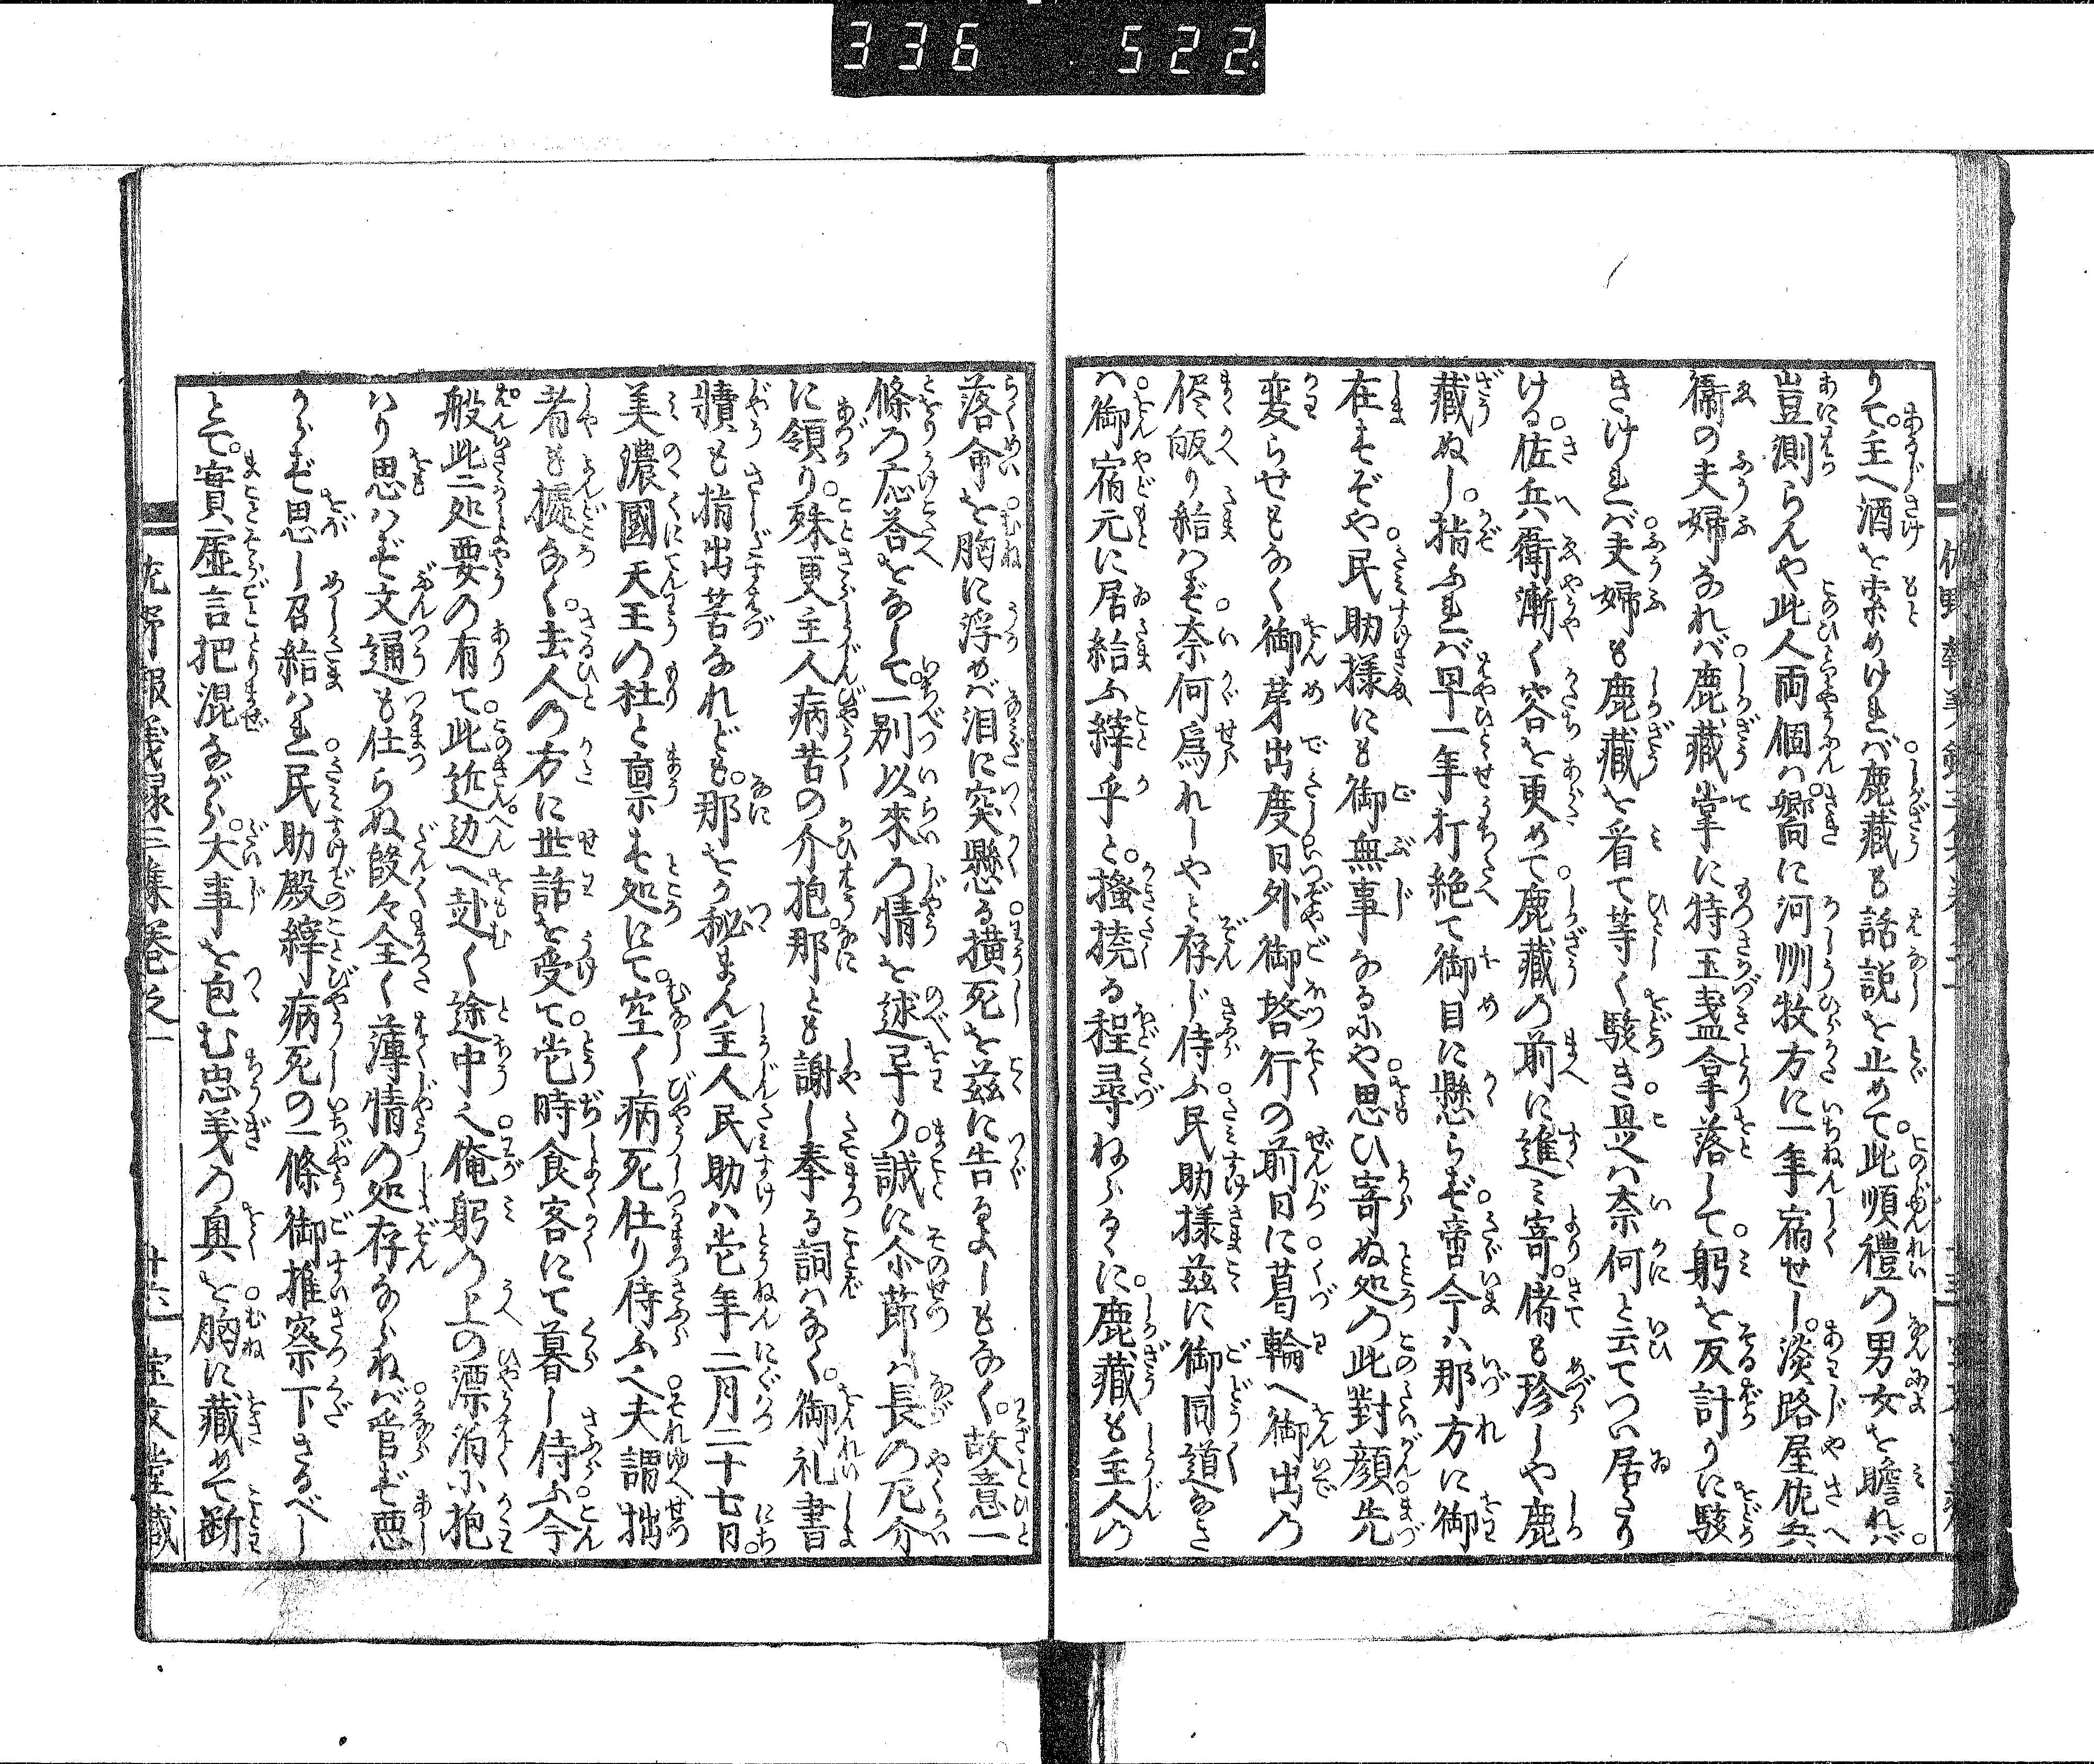 336 522
りて。主へ酒を索めけれバ鹿藏も話説を止めて。此順禮の男女を瞻れバ。
豈測らんや此人両個ハ。嚮に河州牧方に一年宿せし。淡路屋佐兵
衞の夫婦なれバ。鹿藏掌に持玉盞拿落して。躬を反計りに駭
きけれバ。夫婦も鹿藏を看て等く駭き。是ハ奈何と云てつい居たり
ける。佐兵衞漸く容を更めて。鹿藏の前に進ミ寄。偖も珍しや鹿
藏ぬし。指ふれバ早一年打絶て御目に懸らず。啻今ハ那方に御
在すぞや。民助様にも御無事なるにや。思ひ寄ぬ処の此對顔。先
変らせもなく御芽出度。日外御啓行の前日に。葛輪へ御出の
侭皈り給ハず。奈何爲れしやと存じ侍ふ。民助様茲に御同道なさ
ハ。御宿元に居給ふ縡乎と。搔撓る程尋ねらるゝに。鹿藏も主人の
落命を。胸に浮めバ泪に突懸る。横死を茲に告るよしもなく。故意一
條の応答をなして。一別以來の情を述畢り。誠に尓節ハ長の厄介
に領り。殊更主人病苦の介抱。那とも謝し奉る詞ハなく。御礼書
牘も指出苦なれども。那をか秘まん主人民助ハ。壱年二月二十七日。
美濃國天王の社と稟す処にて。空く病死仕り侍ふ。夫謂拙
者も據なく。去人の方に世話を受て。壱時食客にて暮し侍ふ。今
般此二処要の有て。此近辺へ赴く途中之。俺躬の上の漂泊に抱
ハり思ハず文通も仕らぬ段々。全く薄情の処存ならねバ。管ず悪
からず思し召給ハれ。民助殿縡病死の一條。御推察下さるべし
とて。實虚言把混ながら。大事を包む忠義の奥を。胸に藏めて断
佐野報義録三集巻之一
廿六 宝文堂藏